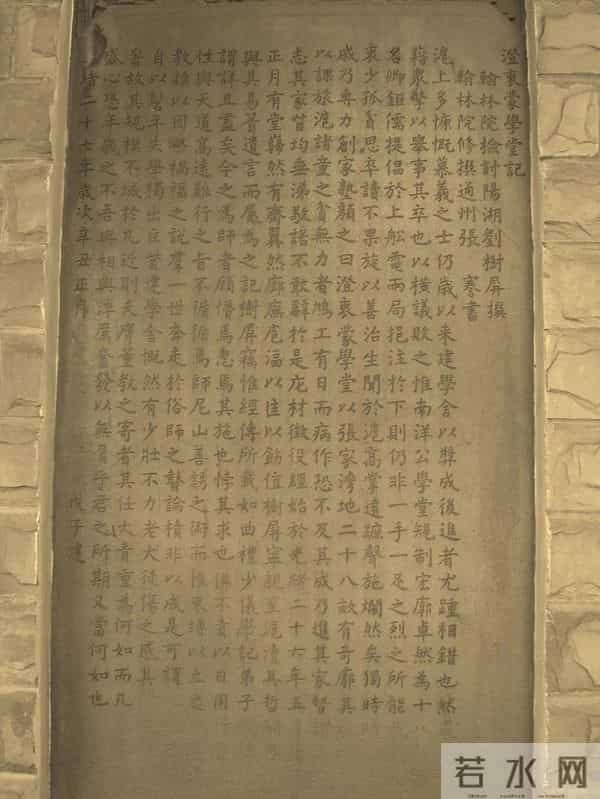 澄衷蒙學堂記
翰林院檢討陽湖劉樹屏撰
翰林院修撰通州張謇書
滬上多慷慨慕義之士仍歲以來建學舍以奬成後進者尤踵相錯也然
藉衆擎以舉事其卒也以橫議敗之惟南洋公學堂規制宏廓卓然為十
名卿鉅儒提倡於上船電兩局挹注於下則仍非一手一足之烈之所能
衷少孤貧思卒讀不果旋以善治生聞於滬高掌遠蹠聲施爛然矣獨時
戚乃專力創家塾顏之曰澄衷蒙學堂以張家灣地二十八畝有奇廓其
以課旅滬諸童之貧無力者鳩工有日而病作恐不及其成乃進其家督
志其家皆均無涕敬諾不敢辭於是庀材徵役經始於光緒二十六年五
正月有堂蘙然有齋翼然廊廡庖湢以匡以飭值樹屏寧親至滬請其哲
與其易簀遺言而屬為之記樹屏竊惟經傳所載如曲禮少儀學記弟子
謂詳且盡矣今之為師者顧懵焉惠焉其施也悖其求也佛不
性與天道高遠難行之旨不循循焉師尼山善誘之術而惟束縛以
教撿以因噎禍福之說羣一世奔走於俗師之瞽論積非以成是可謂
自以髫年失學獨出巨貲建學舍慨然有少壯不力老大徒傷之感其
著於其規模不域於凡近則夫膺董教之寄者其任大責重為何如而凡
盛心恐年歲之不吾與相與淬厲奮發以無負乎君之所期又當何如也
緒二十七年歲次辛丑正月
戊子建
若水网